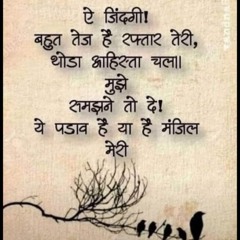 ऐ ज़िंदगी!
बहुत तेज है रफ्तार तेरी,
थोडा आहिस्ता चला।
मुझे
समझने तो दे!
ये पडाव है या है मंजिल
मेरी